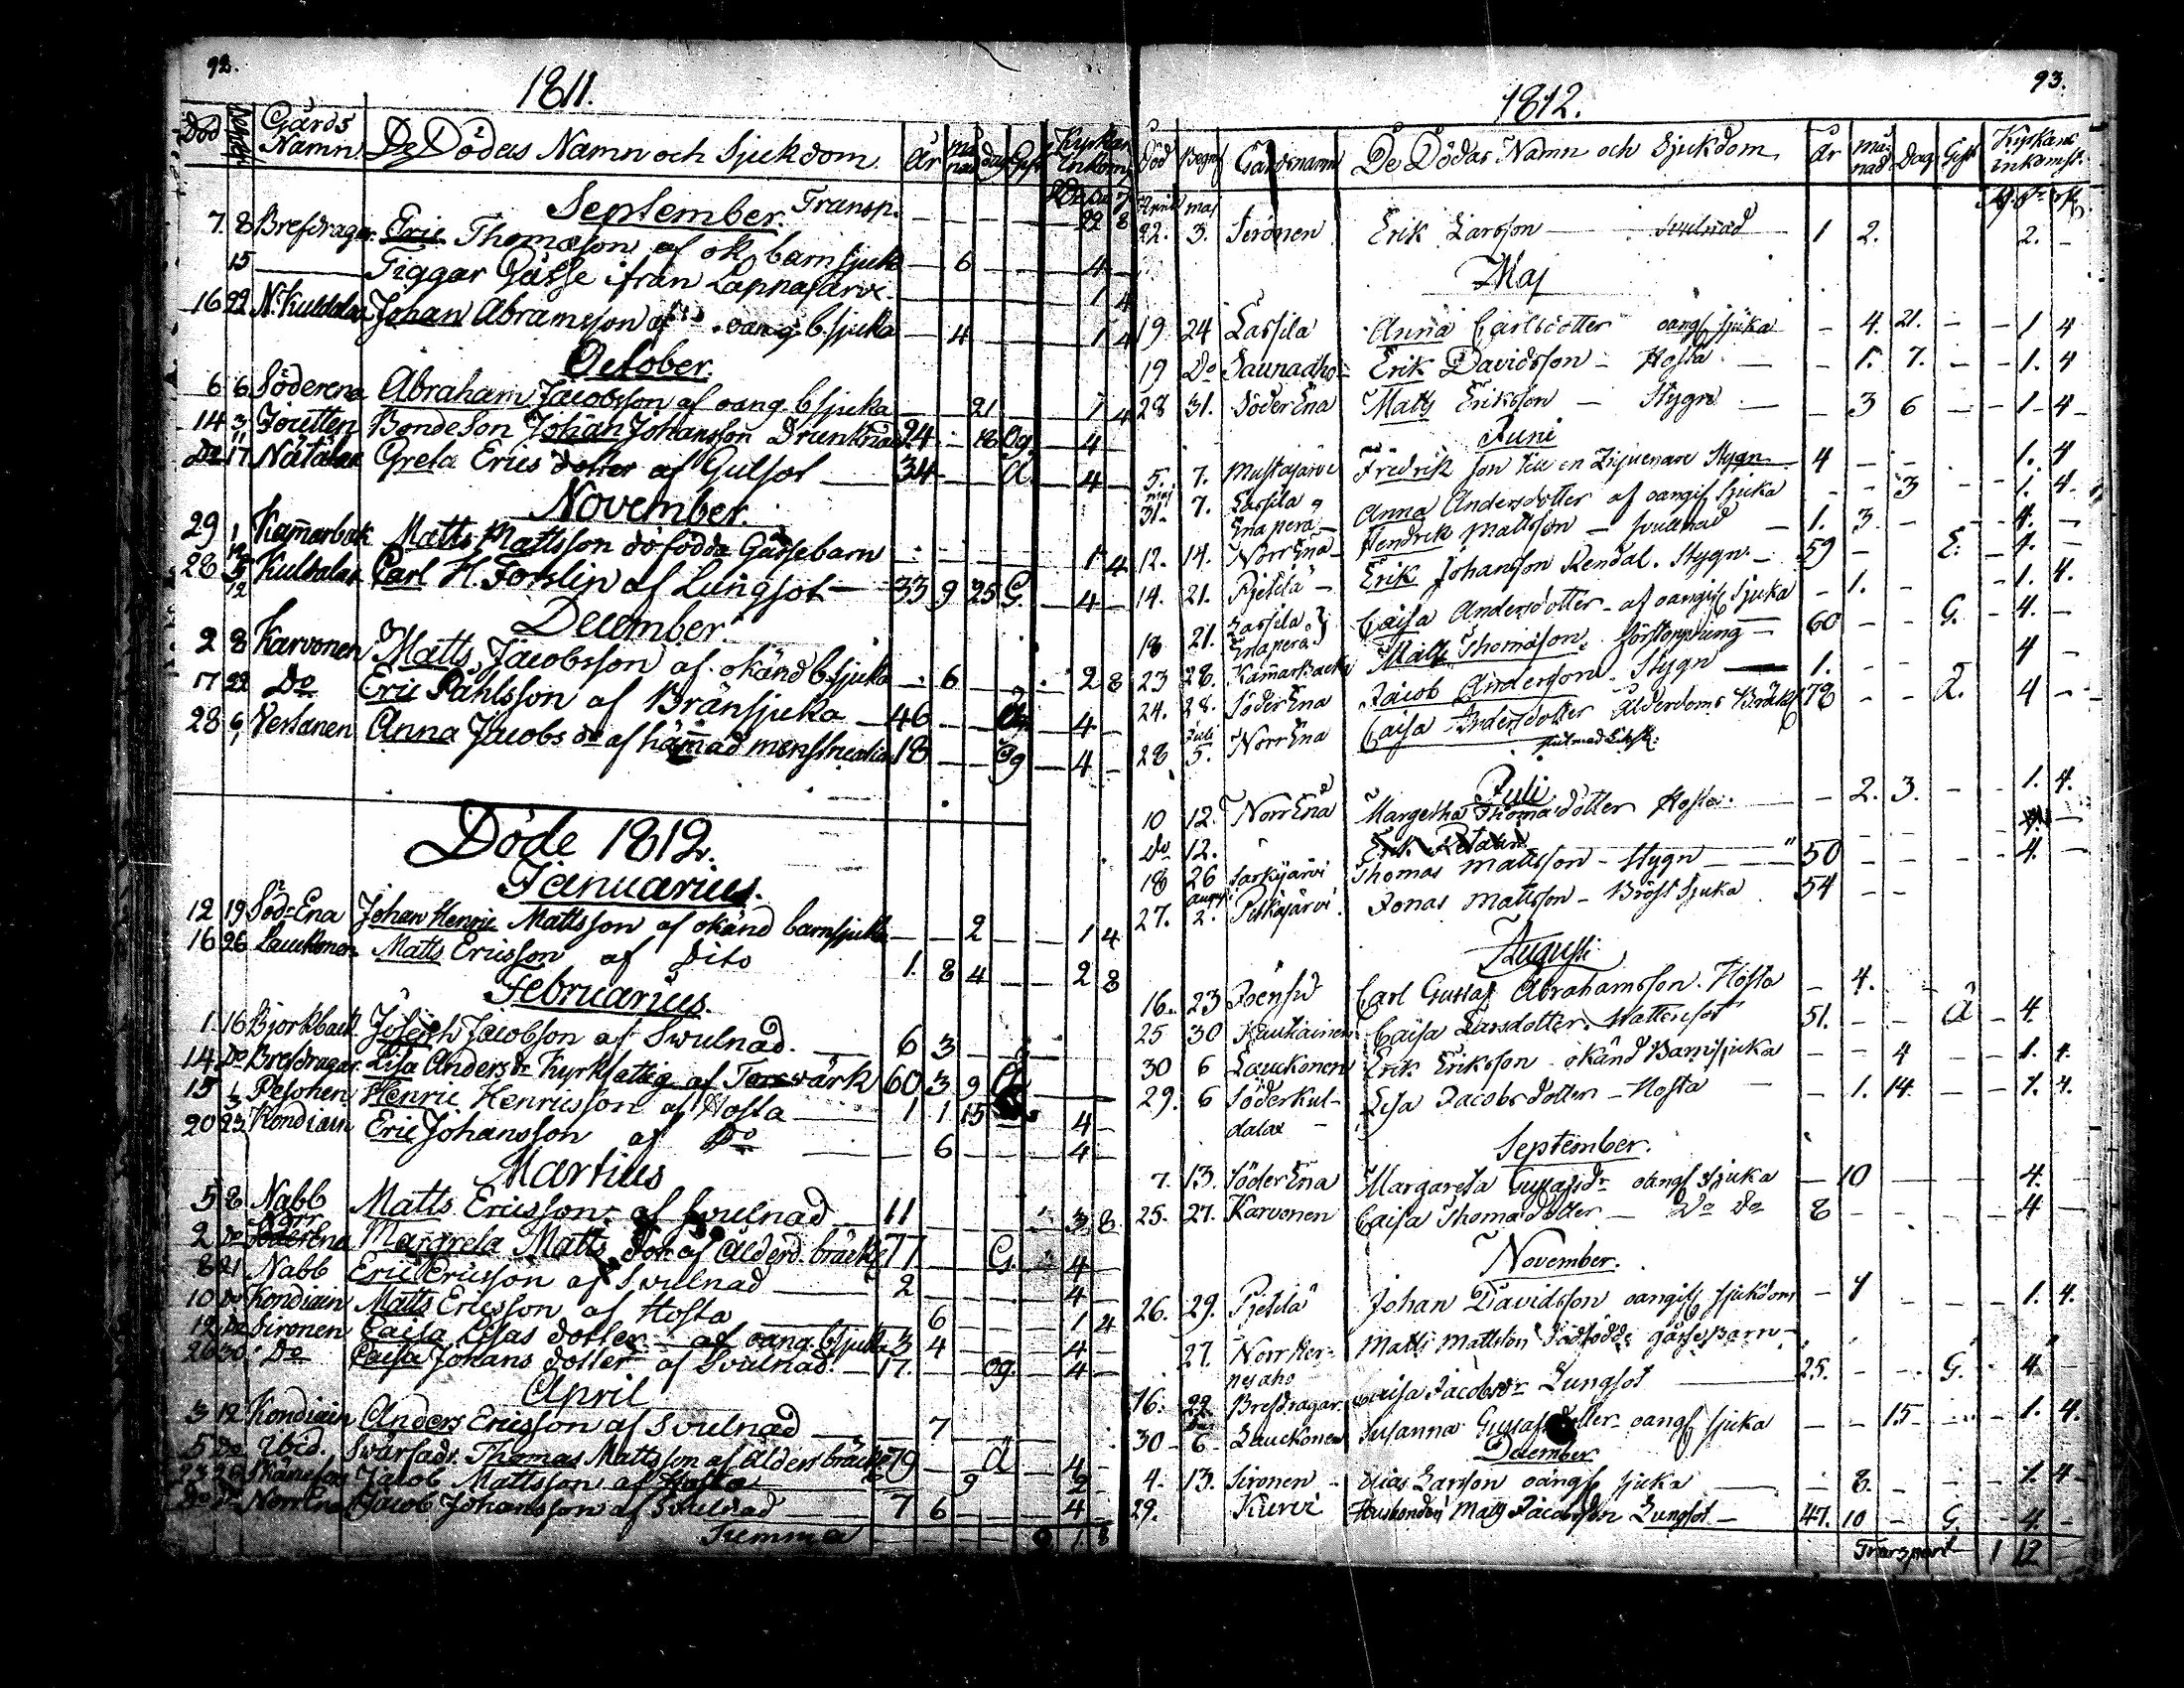 92.
1811.
Död Begraf. Gårds Namn. De Dödas Namn och Sjukdom. År månad dag Gift Kyrkans Inkomst
September. Transp. 22 8
7 8 Brefdragar Eric Thomasson af ok. barnsjuk 6 4
15 Tiggar Gåsse ifrån Lappajärvi 1 4
16 22 N. Kuldala Johan Abramsson af oang. b. sjuka 4 1 4
October.
6 6 Söderena Abraham Jacobsson af oang. b sjuka 21 1 4
14 3 Joutten Bonde Son Johan Johansson Drunknad 24 18 Og. 4
Do 17 Nätälar Greta Erics dotter af Gulsot 34 4
November.
29 1 Kamarback Matts Mattsson dö födda Gåssebarn 1 4
28 Kuldalax Carl H. Forslin af Lungsot 33 9 25 G. 4
December.
2 8 Karvonen Matts Jacobsson af okänd b. sjuka 6 2 8
17 22 Do Eric Påhlsson af Bränsjuka 46 4
28 6 Vessanen Anna Jacobs dr af hämad menstruation 18 Og 4
Döde 1812.
Januarius.
12 19 Söd Ena Johan Henric Mattsson af okänd barnsjukd 2 1 4
16 26 Lauckonen Matts Ericsson af Dito 1. 8 4 2 8
Februarius.
1. 16 Björkback. Joseph Jacobson af Swulnad. 6 3
14 Do Brefdragar. Lisa Anders dr Kyrkfattig af Torrwärk 60 3 9
15 Pesohen Henric Henricsson af Hosta 1 1 15 4
20 23 Kondiain Eric Johansson af Do 6 4
Martius
5 8 Nabb Matts Ericsson af Svulnad 11 3 8
2 Do Norr Söderena Margreta Matts dotr af Ålderd. bräckl 77 G. 4
8 21 Nabb Eric Ericsson af Svulnad 2 4
10 Do Kondiain Matts Ericsson af Hosta 6 1 4
12 Do Sironen Caisa Lisas dotter af oang. b. sjuka 3 4 4
26 30 Do Caisa Johans dotter af Svulnad. 17. og. 4
April
3 12 Kondiain Anders Ericsson af Svulnad 7
5 Do Ibid. Swärfadr. Thomas Mattsson af Ålders bräckl 79 4
Jacob Mattsson af Hosta 9 2
Do Do Norr Ena Jacob Johansson af Svulnad 7 6 4
Summa 9 1 8
93.
1812.
Död Begraf Gårdsnamn De Dödas Namn och Sjukdom År månad Dag Gift Kyrkans inkomst.
April maj
22. 3. Sironen Erik Larsson Svulnad 1 2. 2.
Maj
19 24 Lassila Anna Carlsdotter oangif sjuka 4. 21. 1 4
19 Do Saunadho Erik Davidsson Hosta 1. 7. 1. 4
28 31. Söder Ena Matts Eriksson Stygn 3 6 1 4
Juni
5. 7. Mustajärvi Fredrik son till en Zigenare Stygn 4 1. 4
maj 31. 7. Lassila Enaperä Anna Andersdotter af oangif sjuka 3 1. 4.
12. 14. Norr Ena Hendrik Mattsson Svullnad 1. 3 4.
14. 21. Pietilä Erik Johansson Rendal. Stygn. 59 E. 4.
18 21. Lassila Enaperä Caisa Andersdotter af oangif sjuka 1. 1. 4.
23 28. Kamarbacka Matts Thomasson. förstoppning 60 G. 4.
24. 28. Söder Ena Jacob Andersson. Stygn 1. 4
28 Juli 5. Norr Ena Caisa Andersdotter Ålderdoms Bräckl 78 4
Juli.
10 12. Norr Ena Margetha Thomadotter Hosta. 2. 3. 1. 4.
Do 12.
18 26 Sarkijärvi Thomas Mattsson Stygn 50 4.
27. Augusti 2. Pitkäjärvi Jonas Mattsson Bröst sjuka 54
Augusti
16. 23 Joensu Carl Gustaf Abrahamsson. Hosta 4.
25 30 Kauhainen Caisa Larsdotter. Wattensot 51. 4.
30 6 Lauckonen Erik Eriksson okänd Barnsjuka 4 1. 4.
29. 6 Söderkul- Lisa Jacobs dotter Hosta 1. 14. 1. 4.
dalax
September.
7. 13. Söder Ena Margareta Gustafsdr oangif sjuka 10 4.
25. 27. Karvonen Caisa Thomasdotter Do Do 8 4
November.
26. 29. Pietilä Johan Davidsson oangif sjukdom 1. 4.
27. Norr Ker- Matts Mattsson Dödfödde gåssebarn
nesaho
16. 22. Brefdragar Caisa Jacobsdr Lungsot 25. G. 4
30 6 Lauckonen Susanna Gustafsdotter oangif sjuka 15 1. 4.
December
4. 13. Sironen Elias Larsson oangif sjuka 8. 1. 4
29. Kurvi Husbonden Matts Jacobsson Lungsot 47. 10 G. 4.
Transport 1 12